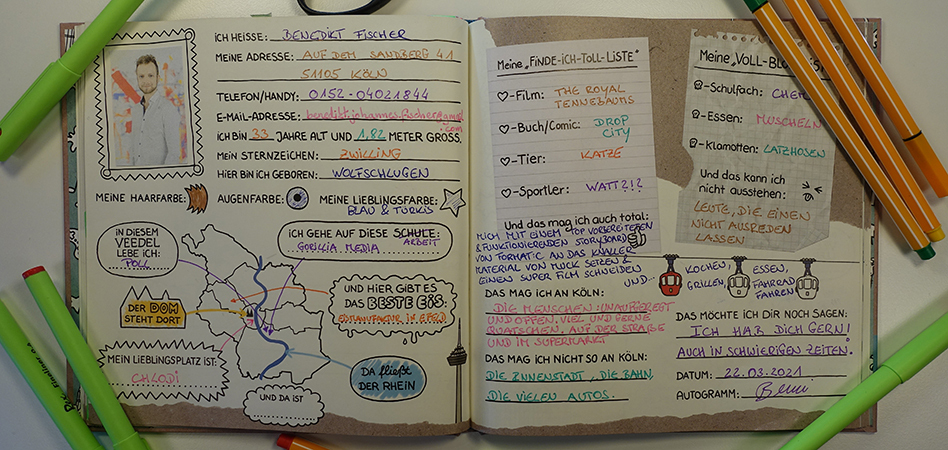 iCH HEISSE: BENEDIKT FISCHER
MEINE ADRESSE: AUF DEM SANDBERG 41
51105 KÖLN
TELEFON/HANDY: 0152-04021844
E-MAIL-ADRESSE: benedikt.johannes.fischer@gmail
.com
iCH BiN 33 JAHRE ALT UND 1,82 METER GROSS.
MEiN STERNZEiCHEN: ZWILLING
HiER BiN iCH GEBOREN: WOLFSCHLUGEN
MEiNE HAARFARBE: AUGENFARBE: MEiNE LiEBLiNGSFARBE:
BLAU & TÜRKIS
iN DiESEM
VEEDEL
LEBE iCH:
POLL
iCH GEHE AUF DiESE SCHULE:
ARBEIT
GORILLA MEDIA
DER DOM
STEHT DORT
UND HiER GiBT ES
DAS BESTE EiS:
EISMANUFAKTUR IN EFRD
MEiN LiEBLiNGSPLATZ iST:
CHLODI
DA fließt
DER RHEiN
UND DA iST
Meine „FiNDE-iCH-TOLL-LiSTE"
-Film: THE ROYAL
TENNEBAUMS
-Buch/Comic: DROP
CITY
-Tier: KATZE
-Sportler: WATT?!?
Und das mag ich auch total:
MICH MIT EINEM TOP VORBEREITETEN
& FUNKTIONIERENDEN STORYBOARD
VON FORMATIC AN DAS KNALLER
MATERIAL VON MUCK SETZEN &
EINEN SUPER FILM SCHNEIDEN
UND...
KOCHEN, ESSEN,
GRILLEN, FAHRRAD
FAHREN
DAS MAG iCH AN KÖLN:
DIE MENSCHEN: UNAUFGEREGT
UND OFFEN. VIEL UND GERNE
QUATSCHEN, AUF DER STRAßE
UND IM SUPERMARKT
DAS MAG iCH NiCHT SO AN KÖLN:
DIE INNENSTADT, DIE BAHN,
DIE VIELEN AUTOS.
Meine „VOLL-BL
-Schulfach: CHEM
-Essen: MUSCHELN
-Klamotten: LATZHOSEN
Und das kann ich
nicht ausstehen:
LEUTE, DIE EINEN
NICHT AUSREDEN
LASSEN
DAS MÖCHTE iCH DiR NOCH SAGEN:
ICH HAB DICH GERN!
AUCH IN SCHWIERIGEN ZEITEN.
DATUM: 22.03.2021
AUTOGRAMM: Beni